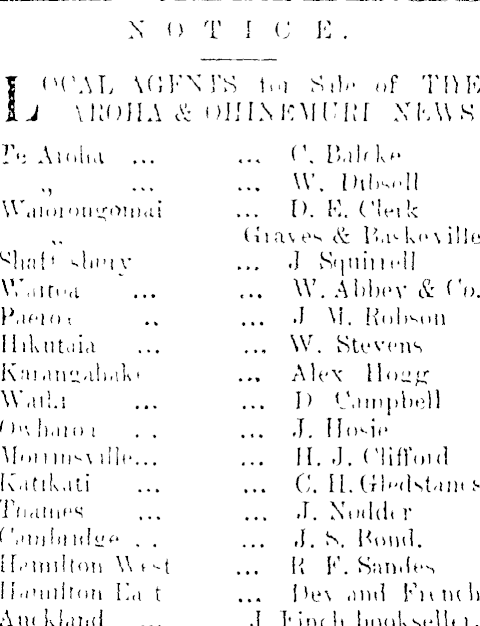 NOTICE.
LOCAL AGENTS for Sale of THE
AROHA & OHINEMURI NEWS
Te Aroha ... ... C. Balcke
„ ... ... W. Dibsell
Waiorongomai ... D. E. Clerk
„ Graves & Baskeville
Shaftesbery ... J Squirrell
Waitoa ... ... W. Abbey & Co.
Paeroa .. ... J M. Robson
Hikutaia ... ... W. Stevens
Karangahake ... Alex Hogg
... ... D Campbell
Owharoa . . ... J. Hosie
Morrinsville... ... H. J. Clifford
Katikati ... ... C. H. Gledstanes
Thames ... ... J. Nodder
Cambridge . . ... J. S. Bond.
Hamilton West ... R F. Sandes
Hamilton East ... Dey and French
Auckland ... J Finch bookseller.